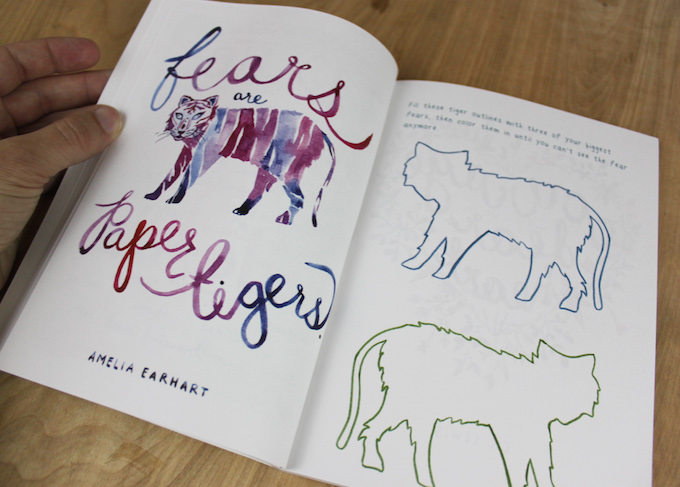 fears
are
Paper
tigers.
AMELIA EARHART
Fill these tiger outlines with three of your biggest
fears, then color them in until you can't see the fear
anymore.